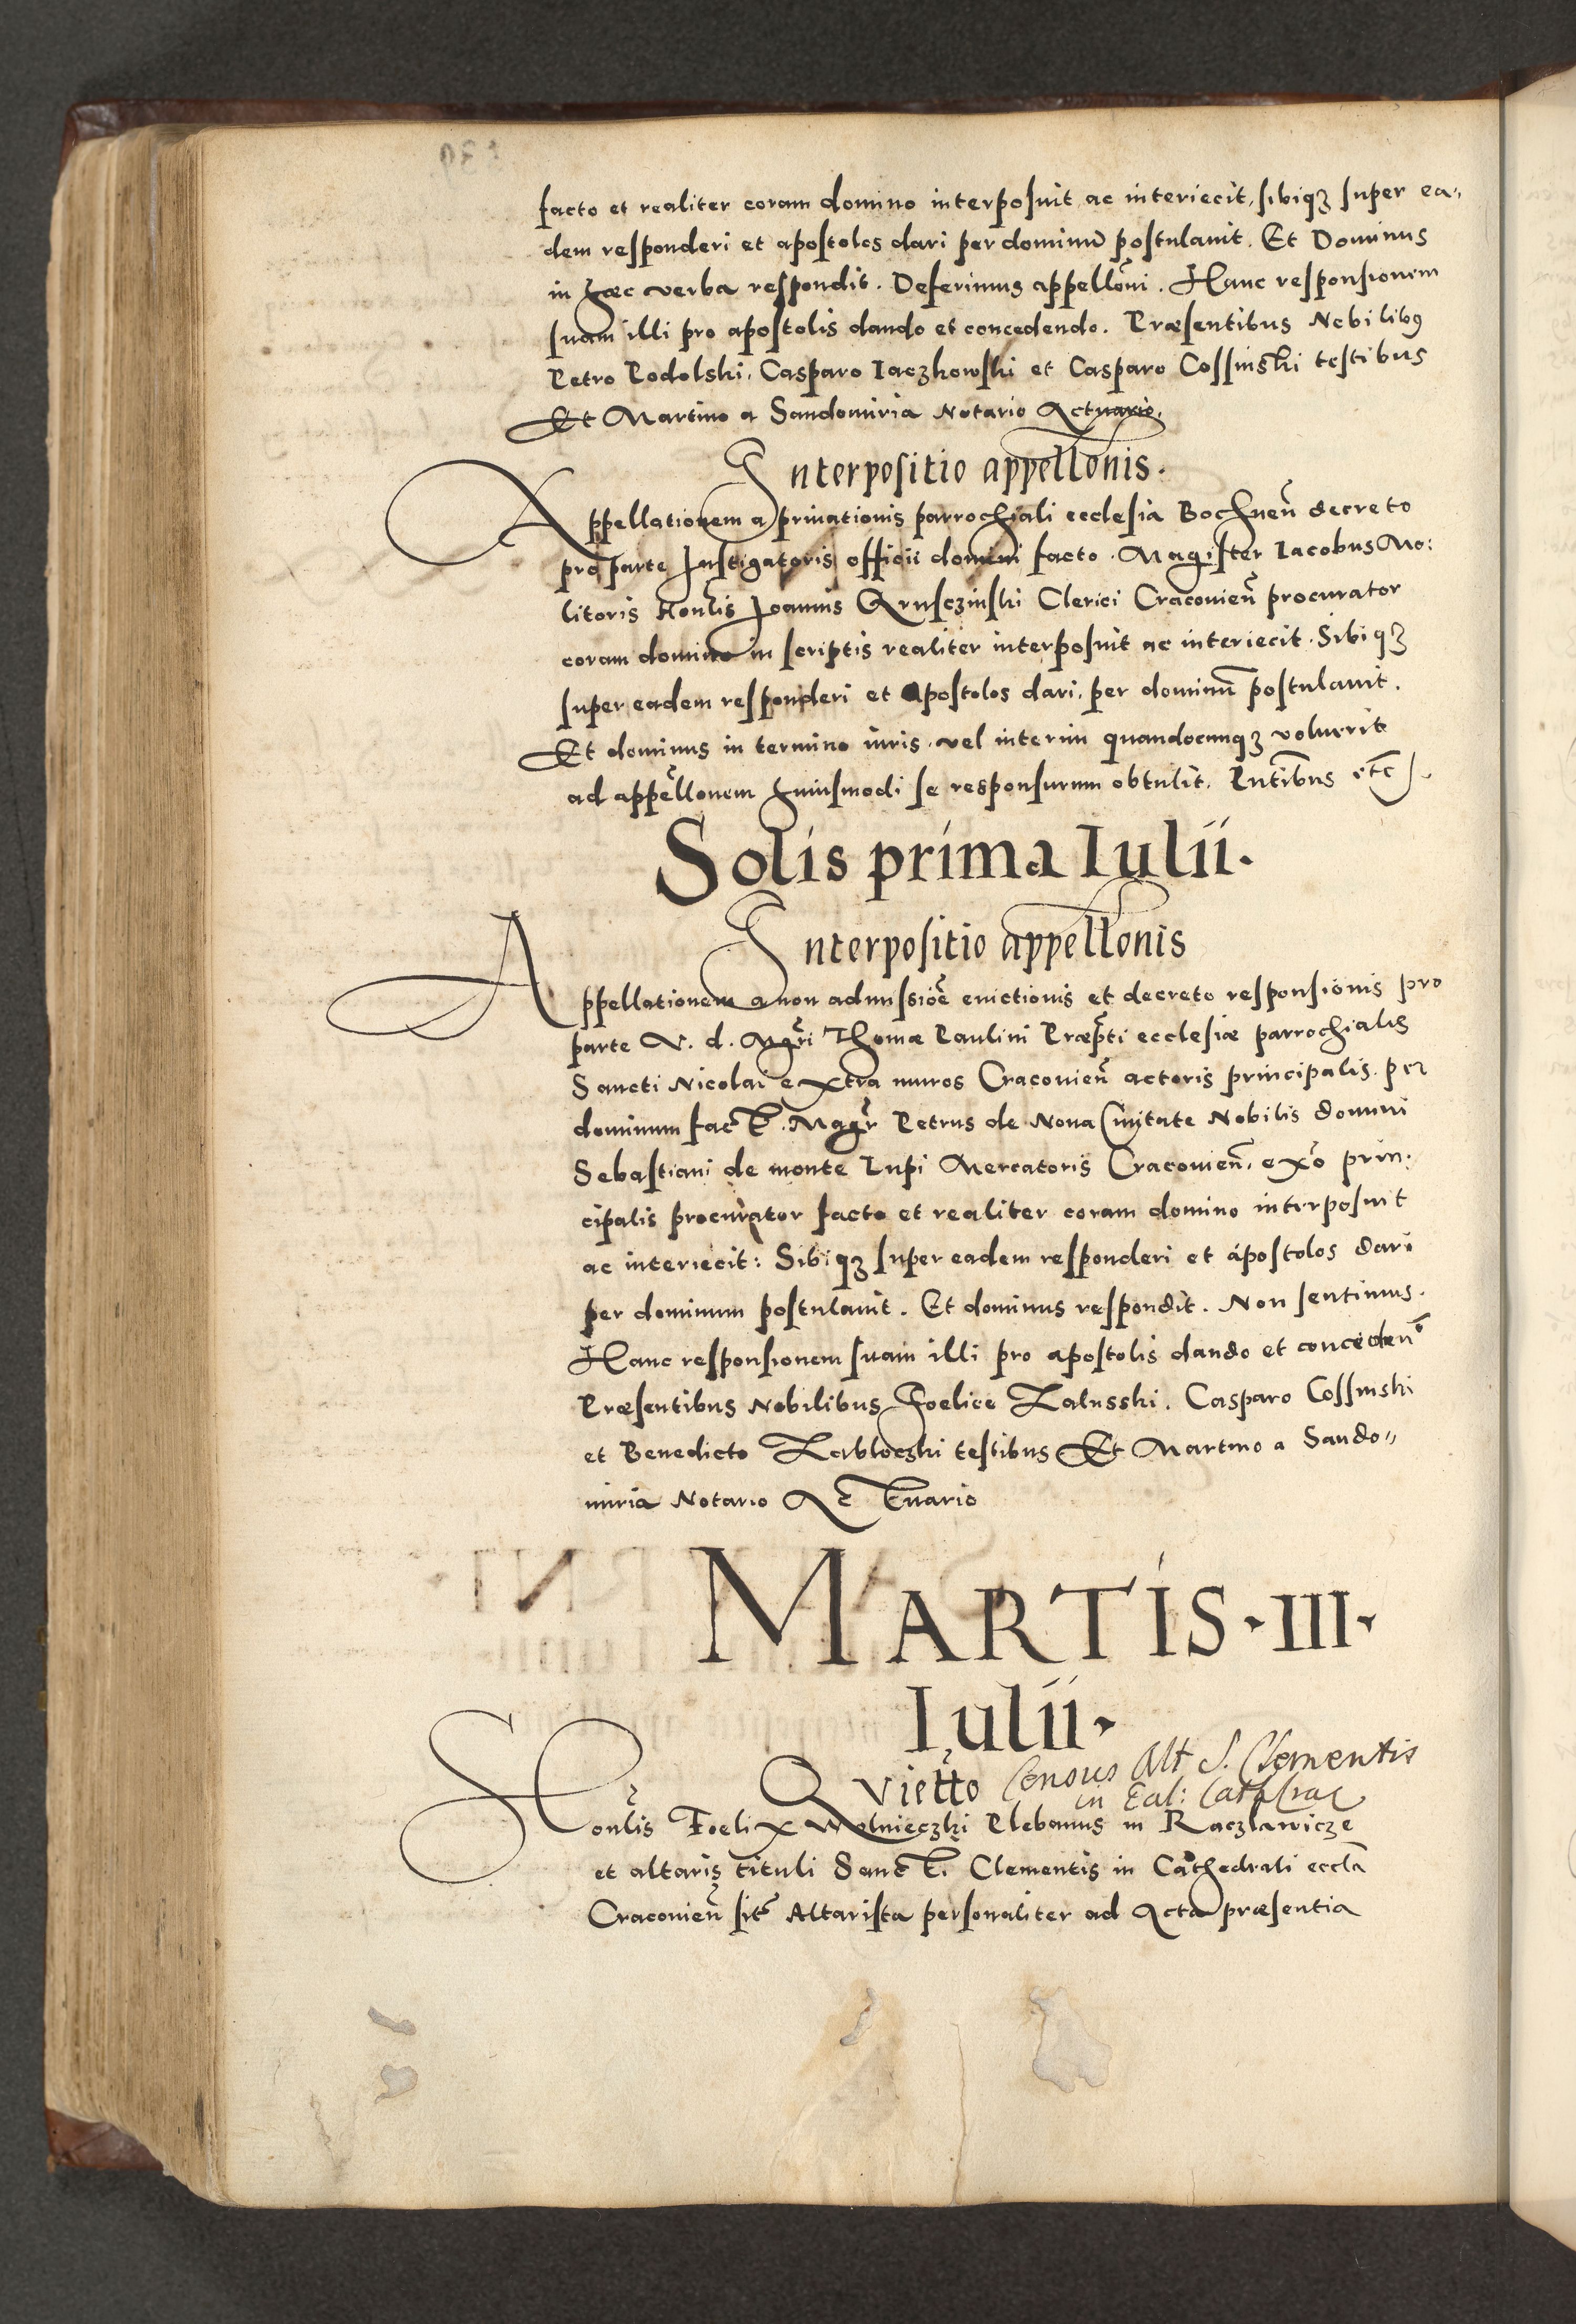 facto et realiter coram domino interposuit ac interiecit, sibiqꝫ super ea„
dem responderi et apostolos dari per dominū postulauit. Et Dominus
in hæc verba respondit. Deferimus appellōni. Hanc responsionem
suam illi pro apostolis dando et concedendo. Præsentibus Nobilibꝯ
Petro Podolski, Casparo Iaczkowski et Casparo Cossinski testibus
Et Martino a Sandomiria Notario Actuario.
Interpositio appellōnis.
Appellationem a priuationis parrochiali ecclesia Bochneñ decreto
pro parte Instigatoris officii domini facto. Magister Iacobus Mo:
litoris Honl̃is Joannis Grusczinski Clerici Cracovieñ procurator
coram domino in scriptis realiter interposuit ac interiecit. Sibiqꝫ
super eadem responderi et Apostolos dari, per dominū postulauit.
Et dominus in termino iuris, vel interim quandocunqꝫ voluerit
ad appellōnem huiusmodi se responsurum obtulit. Pn̄tibus etc̃
Solis prima Iulii.
Interpositio appellōnis
Appellationem a non admissiōe euictionis et decreto responsionis pro
parte V. d. Mgr̃i Thomæ Paulini Præpt̃i ecclesiæ parrochialis
Sancti Nicolai extra muros Cracovieñ actoris principalis per
dominum fact̃. Magr̃ Petrus de Noua Ciuitate Nobilis domini
Sebastiani de monte Lupi Mercatoris Cracovieñ, exōo prin:
cipalis procurator facto et realiter coram domino interposuit
ac interiecit: Sibiqꝫ super eadem responderi et apostolos dari
per dominum postulauit. Et dominus respondit. Non sentimus.
Hanc responsionem suam illi pro apostolis dando et conceden̄
Præsentibus Nobilibus Foelice Zalusski. Casparo Cossinski
et Benedicto Zabloczki testibus Et Martino a Sando„
miria Notario Actuario
MARTIS · III ·
Iulii ·
Quiett̃o Census Alt S. Clementis
in Eccl: Cath Crac
Honl̃is Foelix Wolnieczki Plebanus in Raczlawicze
et altaris tituli Sancti Clementis in Cathedrali eccl̃a
Cracovieñ sit̃ Altarista personaliter ad Acta præsentia